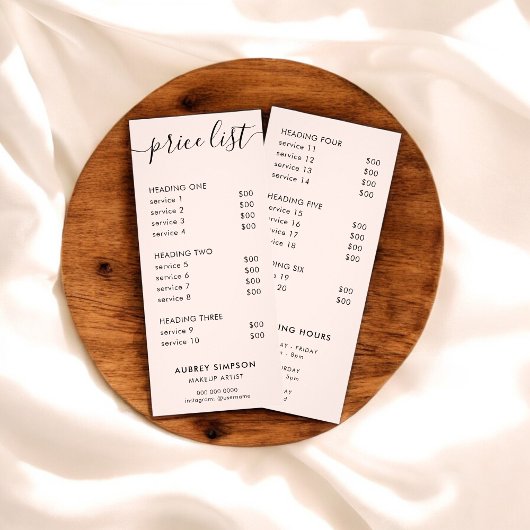 price list
HEADING ONE
service 1 $00
service 2 $00
service 3 $00
service 4 $00
HEADING TWO
service 5 $00
service 6 $00
service 7 $00
service 8 $00
HEADING THREE
service 9 $00
service 10 $00
AUBREY SIMPSON
MAKEUP ARTIST
000 000 0000
instagram: @username
HEADING FOUR
service 11 $00
service 12 $00
service 13 $00
service 14 $00
HEADING FIVE
service 15 $00
service 16 $00
service 17 $00
service 18 $00
SIX
19 $00
20 $00
HOURS
FRIDAY